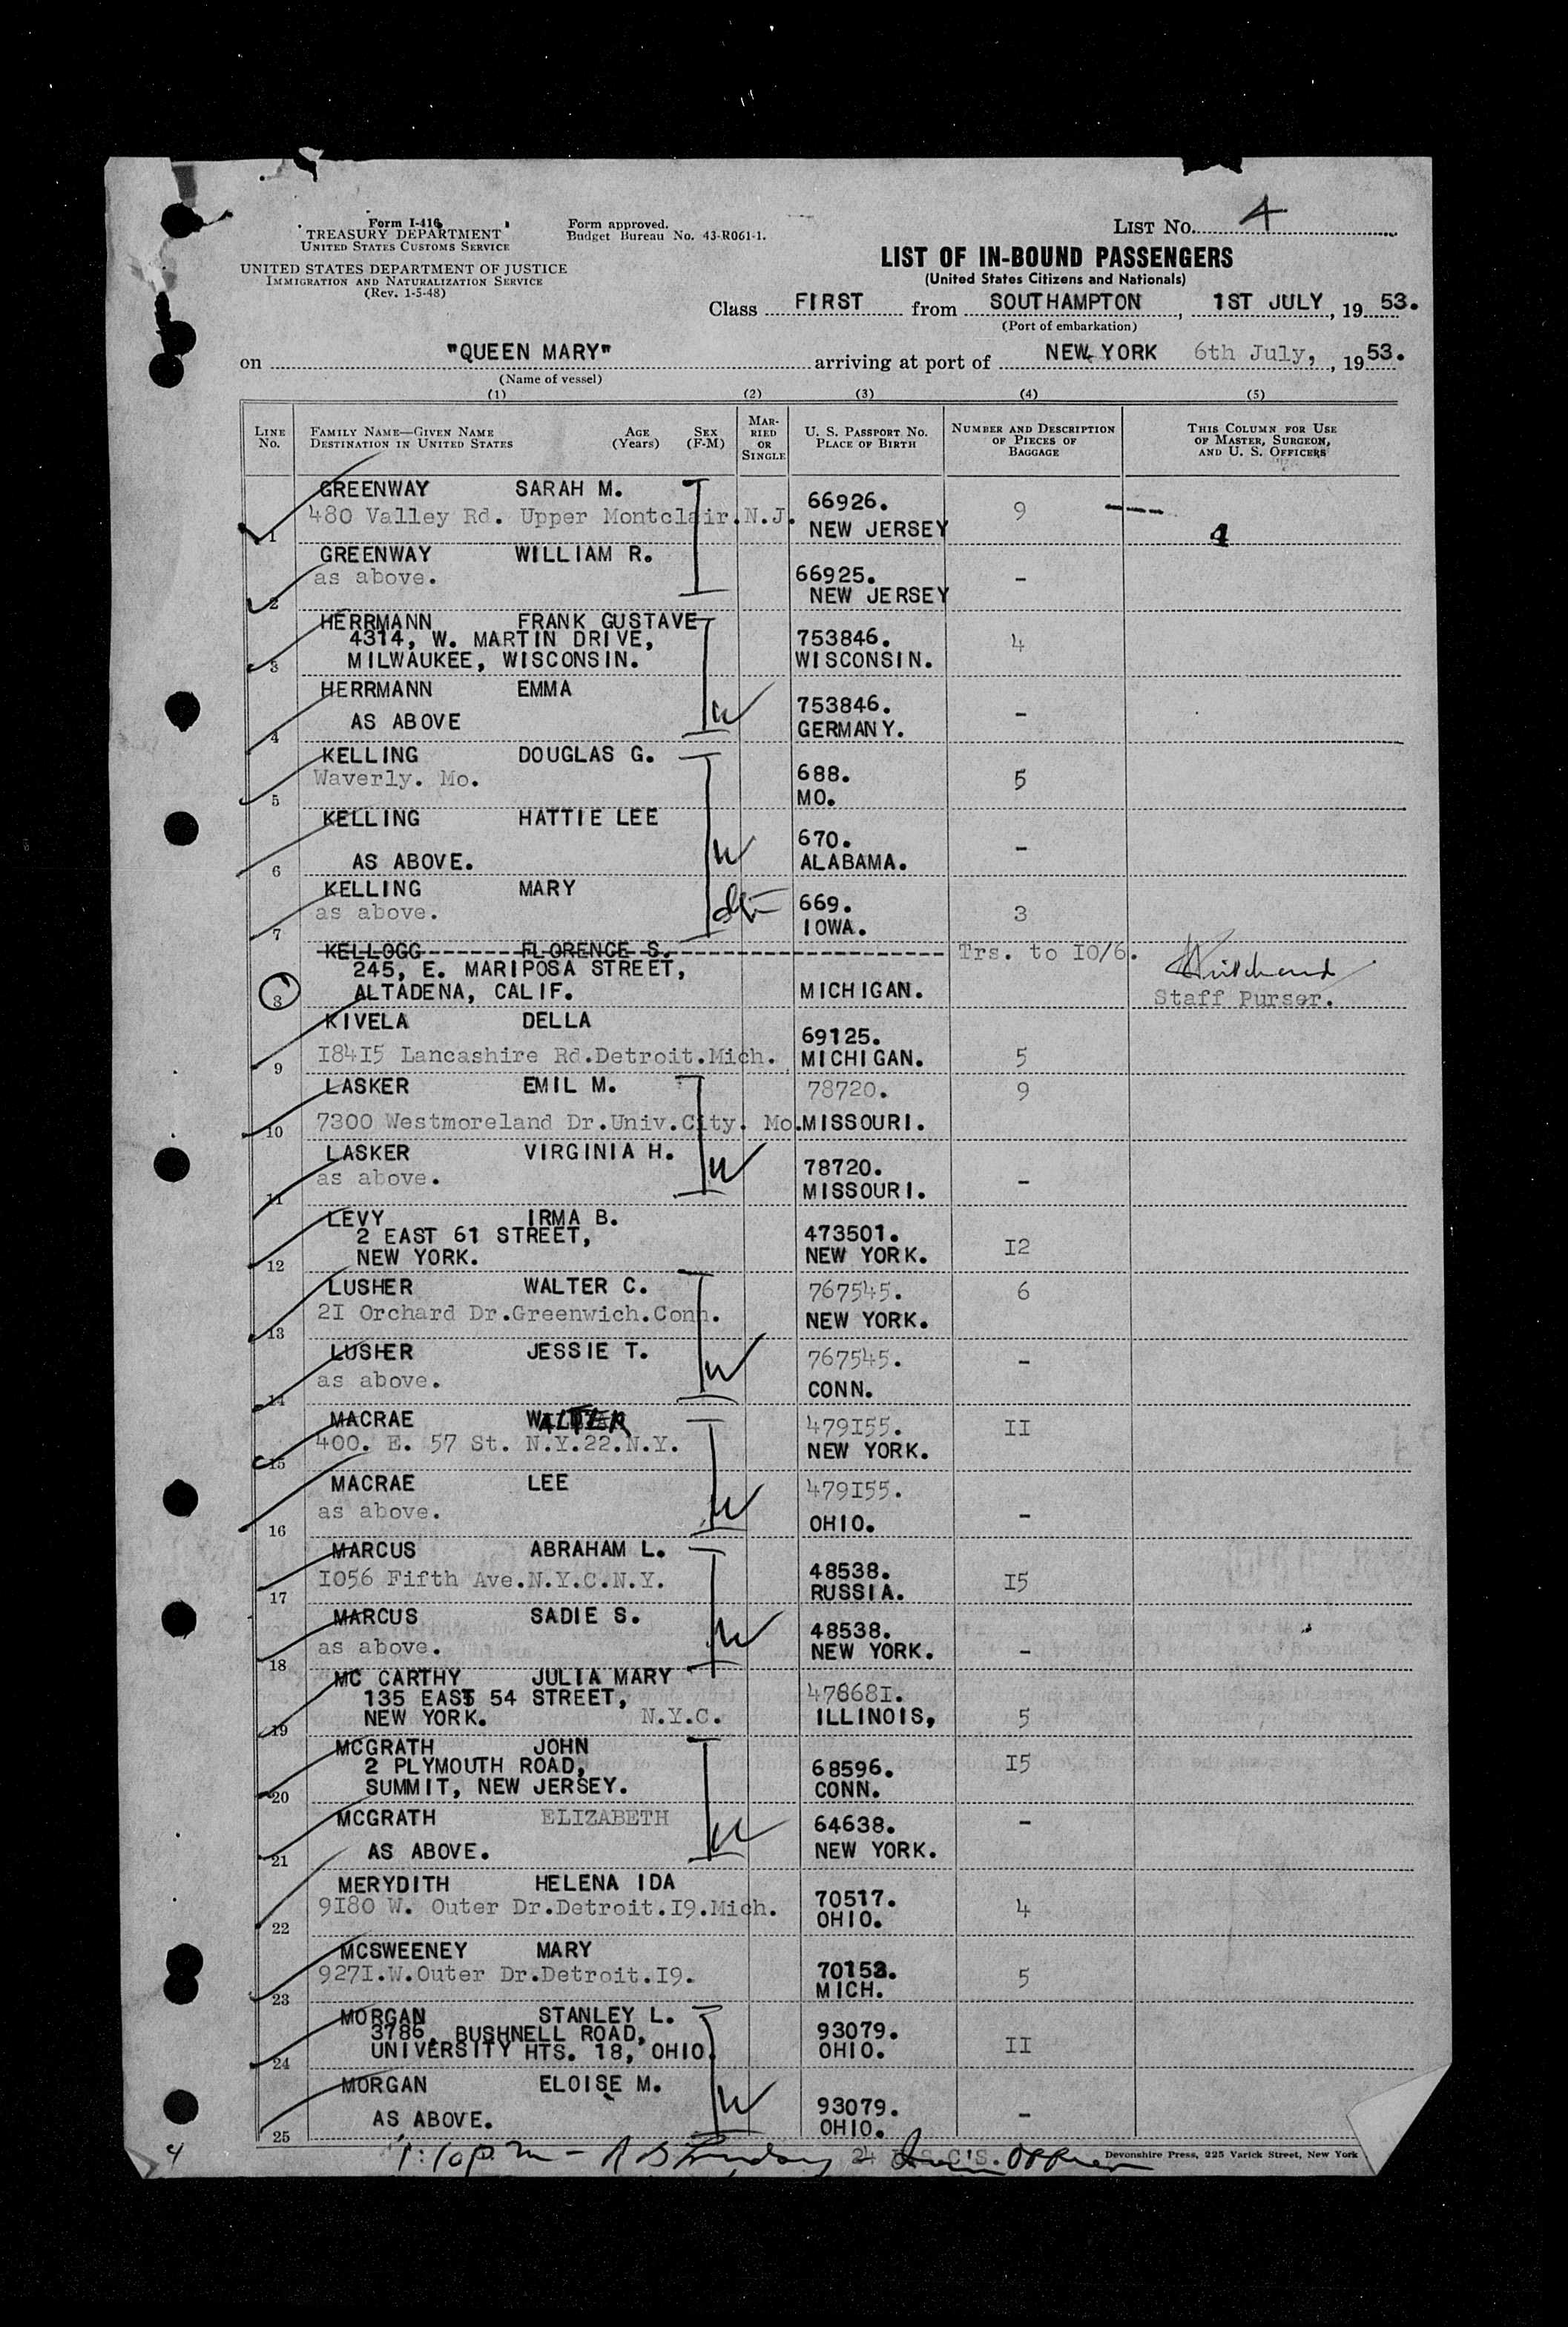 Form I-416
TREASURY DEPARTMENT
UNITED STATES CUSTOMS SERVICE
UNITED STATES DEPARTMENT OF JUSTICE
IMMIGRATION AND NATURALIZATION SERVICE
(Rev. 1-5-48)
Form approved.
Budget Bureau No. 43-R061-1.
LIST NO. 4
LIST OF IN-BOUND PASSENGERS
(United States Citizens and Nationals)
Class FIRST from SOUTHAMPTON, 1ST JULY, 1953.
(Port of embarkation)
on "QUEEN MARY" arriving at port of NEW YORK 6th July, , 1953.
(Name of vessel)
(1) (2) (3) (4) (5)
LINE NO. FAMILY NAME—GIVEN NAME DESTINATION IN UNITED STATES AGE (Years) SEX (F-M) MARRIED OR SINGLE U. S. PASSPORT NO. PLACE OF BIRTH NUMBER AND DESCRIPTION OF PIECES OF BAGGAGE THIS COLUMN FOR USE OF MASTER, SURGEON, AND U. S. OFFICERS
GREENWAY SARAH M. 66926. 9 ----
1 480 Valley Rd. Upper Montclair.N.J. NEW JERSEY 4
GREENWAY WILLIAM R. 66925. -
2 as above. NEW JERSEY
HERRMANN FRANK GUSTAVE
4314, W. MARTIN DRIVE, 753846. 4
3 MILWAUKEE, WISCONSIN. WISCONSIN.
HERRMANN EMMA 753846. -
4 AS ABOVE W GERMANY.
KELLING DOUGLAS G. 688. 5
5 Waverly. Mo. MO.
KELLING HATTIE LEE 670. -
6 AS ABOVE. W ALABAMA.
KELLING MARY 669. 3
7 as above. IOWA.
KELLOGG FLORENCE S. Trs. to 10/6.
245, E. MARIPOSA STREET,
8 ALTADENA, CALIF. MICHIGAN. Staff Purser.
KIVELA DELLA 69125.
9 18415 Lancashire Rd.Detroit.Mich. MICHIGAN. 5
LASKER EMIL M. 78720. 9
10 7300 Westmoreland Dr.Univ.City. Mo. MISSOURI.
LASKER VIRGINIA H. 78720. -
11 as above. W MISSOURI.
LEVY IRMA B.
2 EAST 61 STREET, 473501. 12
12 NEW YORK. NEW YORK.
LUSHER WALTER C. 767545. 6
13 21 Orchard Dr.Greenwich.Conn. NEW YORK.
LUSHER JESSIE T. 767545. -
14 as above. W CONN.
MACRAE WALTER 479155. 11
15 400. E. 57 St. N.Y.22.N.Y. NEW YORK.
MACRAE LEE 479155. -
16 as above. W OHIO.
MARCUS ABRAHAM L. 48538. 15
17 1056 Fifth Ave.N.Y.C.N.Y. RUSSIA.
MARCUS SADIE S. 48538. -
18 as above. W NEW YORK.
MC CARTHY JULIA MARY 478681.
135 EAST 54 STREET, ILLINOIS, 5
19 NEW YORK. N.Y.C.
MCGRATH JOHN 15
2 PLYMOUTH ROAD, 68596.
20 SUMMIT, NEW JERSEY. CONN.
MCGRATH ELIZABETH 64638. -
21 AS ABOVE. W NEW YORK.
MERYDITH HELENA IDA 70517. 4
22 9180 W. Outer Dr.Detroit.19.Mich. OHIO.
MCSWEENEY MARY 70152. 5
23 9271.W.Outer Dr.Detroit.19. MICH.
MORGAN STANLEY L.
3786, BUSHNELL ROAD, 93079. 11
24 UNIVERSITY HTS. 18, OHIO. OHIO.
MORGAN ELOISE M. 93079. -
25 AS ABOVE. W OHIO.
4 1:10 p.m - 24 U.S.C'S. Devonshire Press, 225 Varick Street, New York